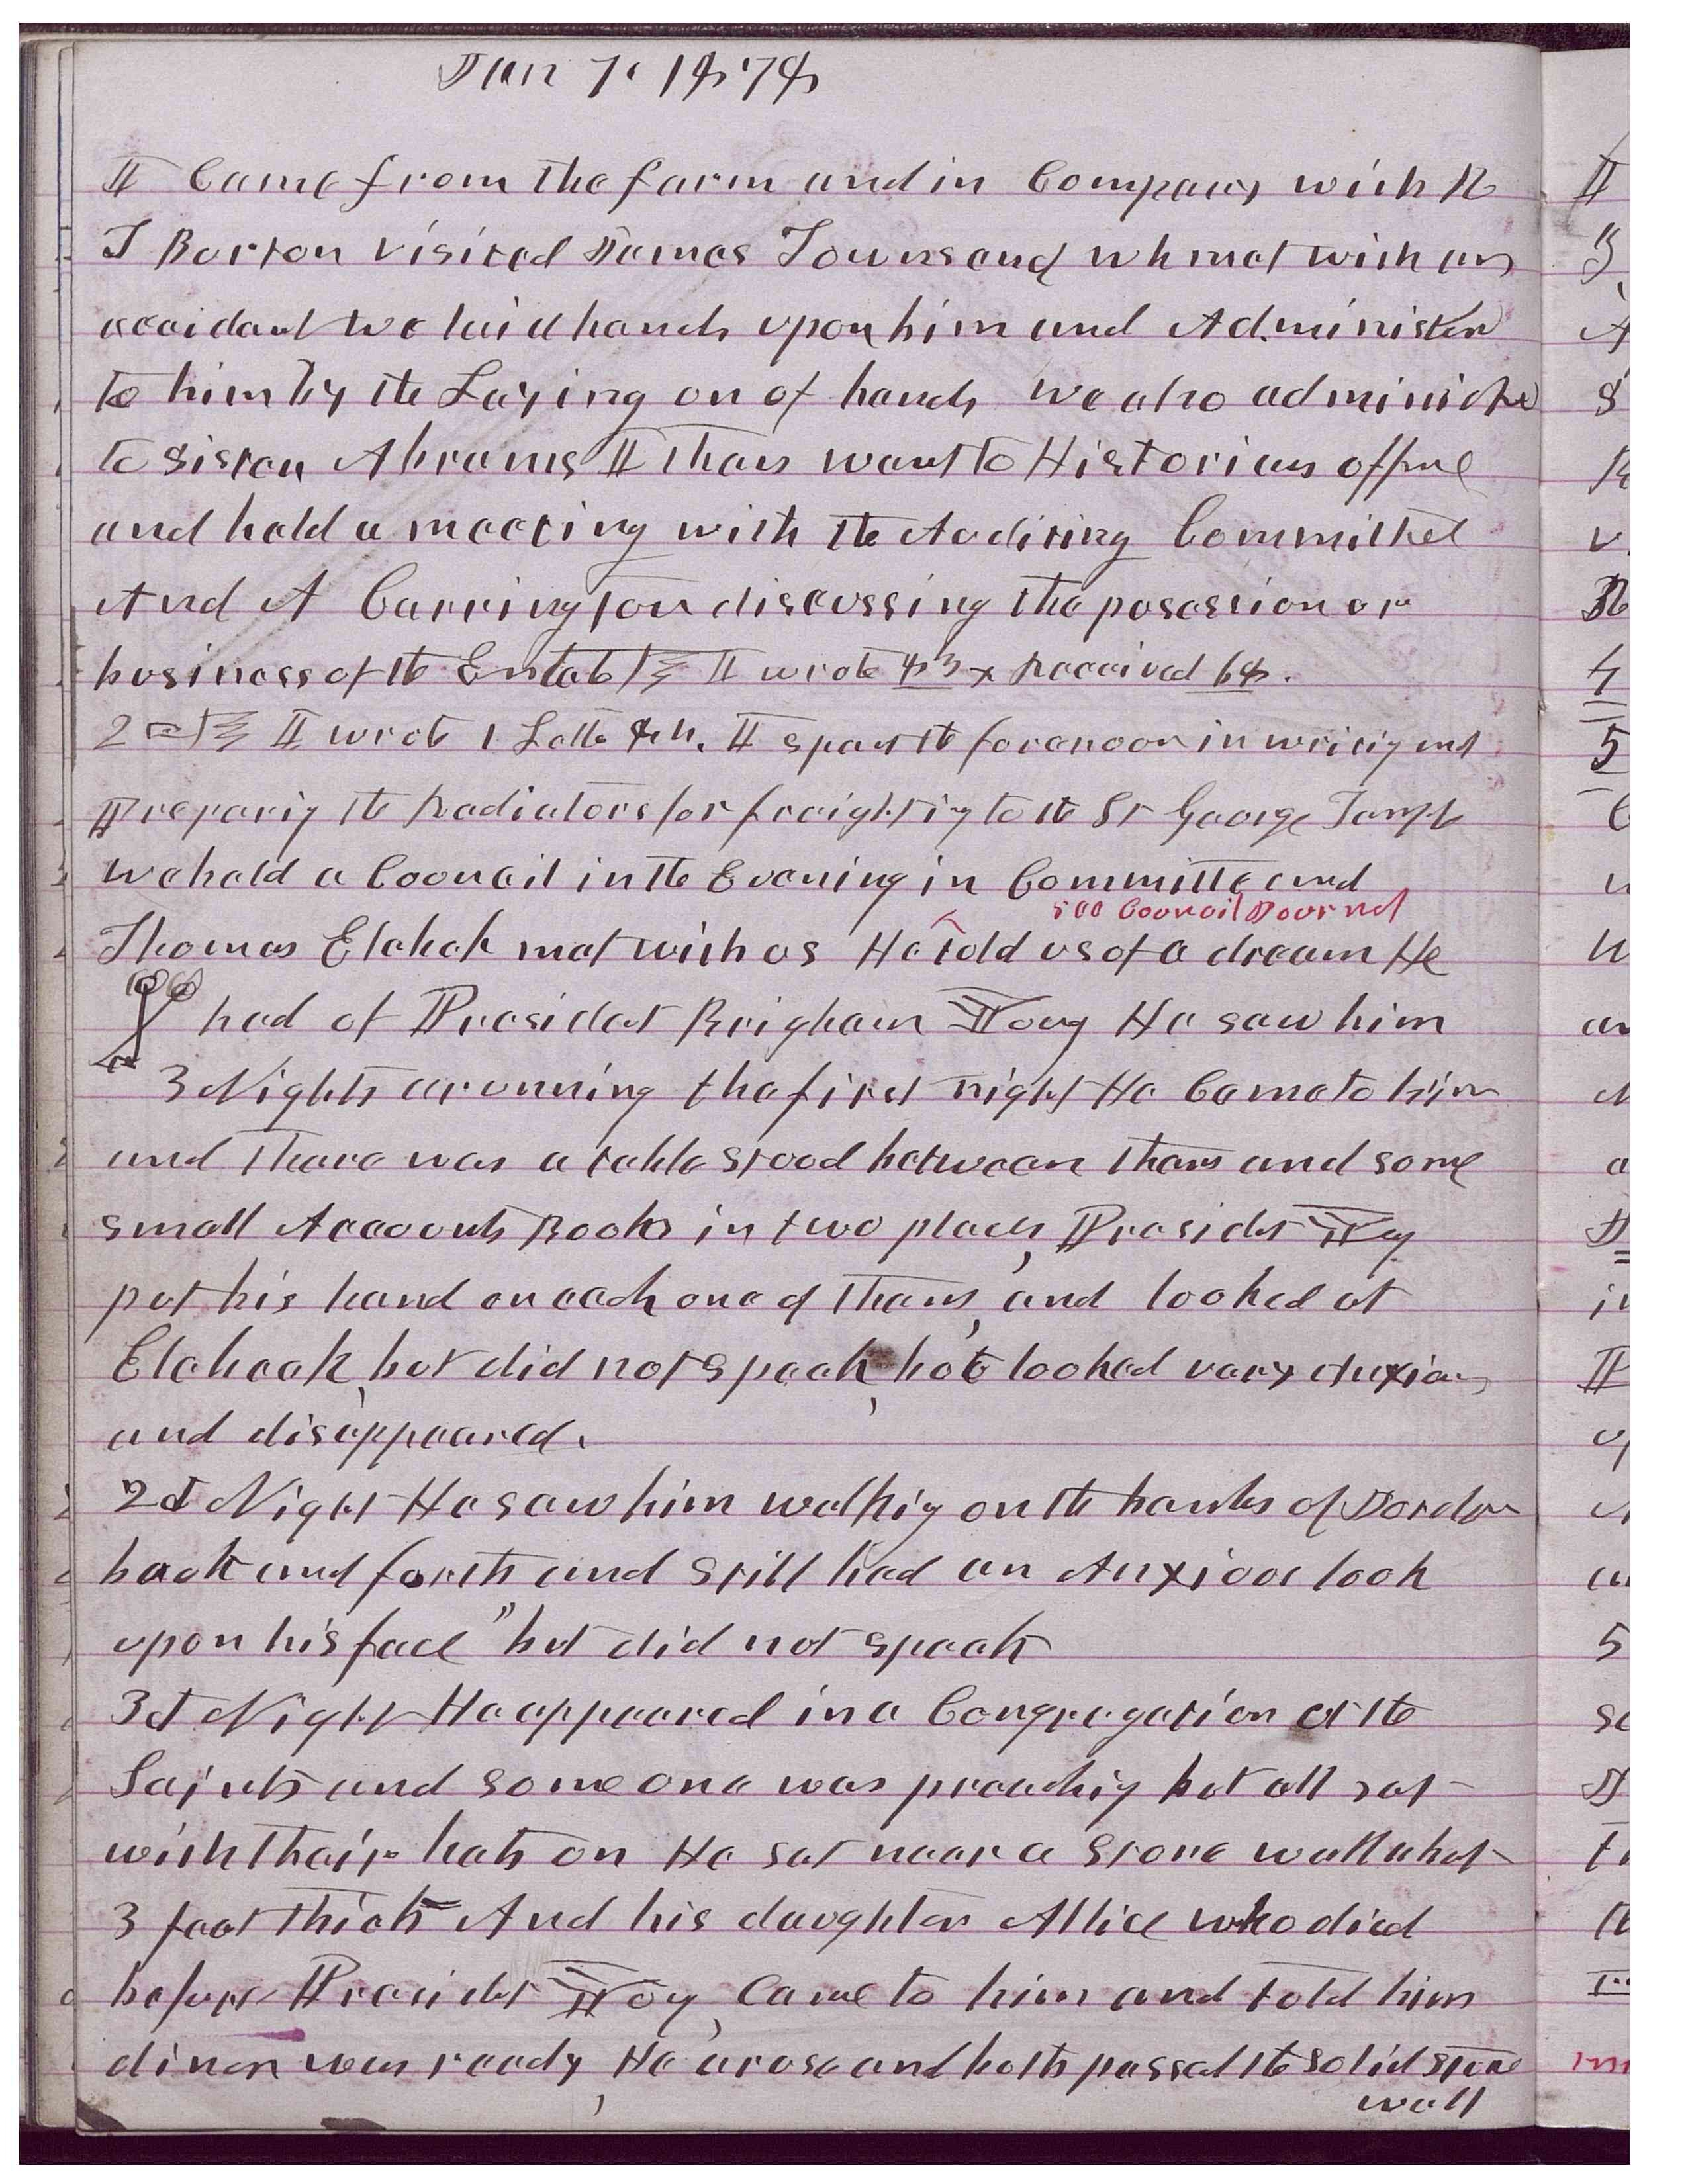 Jan 1. 1878
I Came from the farm and in Company with R
T Borton visited James Townsend wh met with an
accident we laid hands upon him and Administer
to him by the Laying on of hands we also administe
to Sister Abrams I then went to Historians office
and held a meeting with the Auditing Committee
And A Carrington discussing the posession or
business of the Estate I wrote 83 & Received 68.
2 I wrote 1 Lette I spent the forenoon in writig and
Preparig the Radiators for freighting to the St George Temple
we held a Council in the Evening in Committe and
see Council Journal
Thomas Elebeck met with us He told us of a dream He
had of President Brigham Young He saw him
3 Nights arunning the first night He Came to him
and there was a table stood between them and some
small Accounts Books in two places, President Young
put his hand on each one of them, and looked at
Elebeck, but did not speak, but looked very Anxious
and disappeared.
2d Night He saw him walkig on the banks of Jordon
back and forth and still had an Anxious look
upon his face" but did not speak
3d Night He appeared in a Congregation of the
Saints and some one was preachig but all sat
with their hats on He sat near a stone wall about
3 feet thick And his daughter Allice who died
before President Young, Came to him and told him
diner was ready, He arose and both passed the solid stone
wall